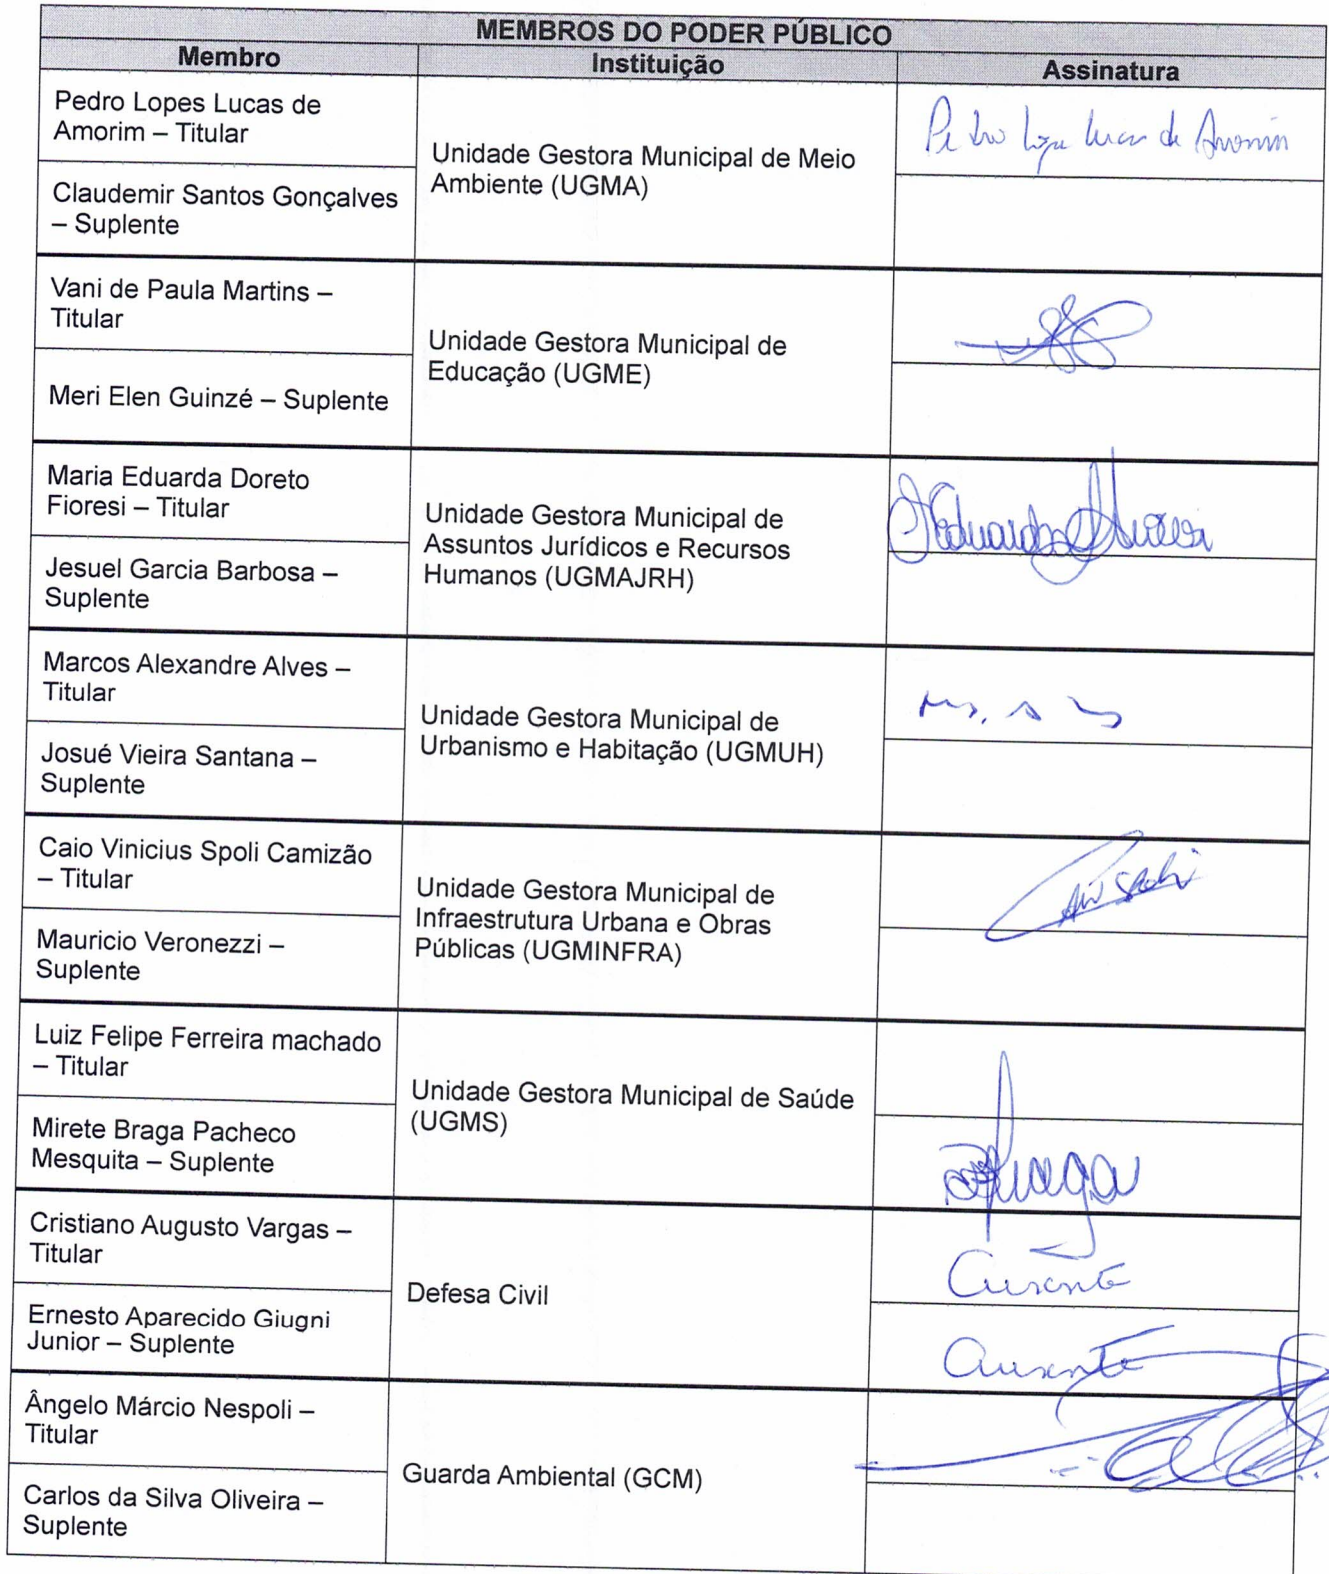 MEMBROS DO PODER PÚBLICO
Membro
Instituição
Assinatura
Pedro Lopes Lucas de
Amorim – Titular
Unidade Gestora Municipal de Meio
Ambiente (UGMA)
Pedro Lopes Lucas de Amorim
Claudemir Santos Gonçalves
– Suplente
Vani de Paula Martins –
Titular
Unidade Gestora Municipal de
Educação (UGME)
Meri Elen Guinzé – Suplente
Maria Eduarda Doreto
Fioresi – Titular
Unidade Gestora Municipal de
Assuntos Jurídicos e Recursos
Humanos (UGMAJRH)
Jesuel Garcia Barbosa –
Suplente
Marcos Alexandre Alves –
Titular
Unidade Gestora Municipal de
Urbanismo e Habitação (UGMUH)
Josué Vieira Santana –
Suplente
Caio Vinicius Spoli Camizão
– Titular
Unidade Gestora Municipal de
Infraestrutura Urbana e Obras
Públicas (UGMINFRA)
Mauricio Veronezzi –
Suplente
Luiz Felipe Ferreira machado
– Titular
Unidade Gestora Municipal de Saúde
(UGMS)
Mirete Braga Pacheco
Mesquita – Suplente
Cristiano Augusto Vargas –
Titular
Defesa Civil
Ausente
Ernesto Aparecido Giugni
Junior – Suplente
Ausente
Ângelo Márcio Nespoli –
Titular
Guarda Ambiental (GCM)
Carlos da Silva Oliveira –
Suplente